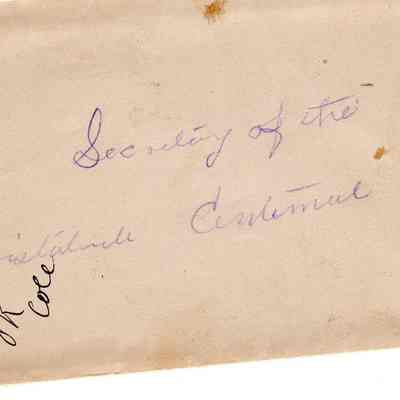 Secretary of the
Centennial
Cole